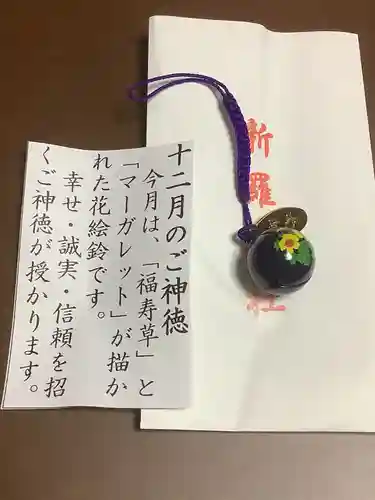 十二月のご神徳
今月は、「福寿草」と
「マーガレット」が描か
れた花絵鈴です。
幸せ・誠実・信頼を招
くご神徳が授かります。
新羅
社